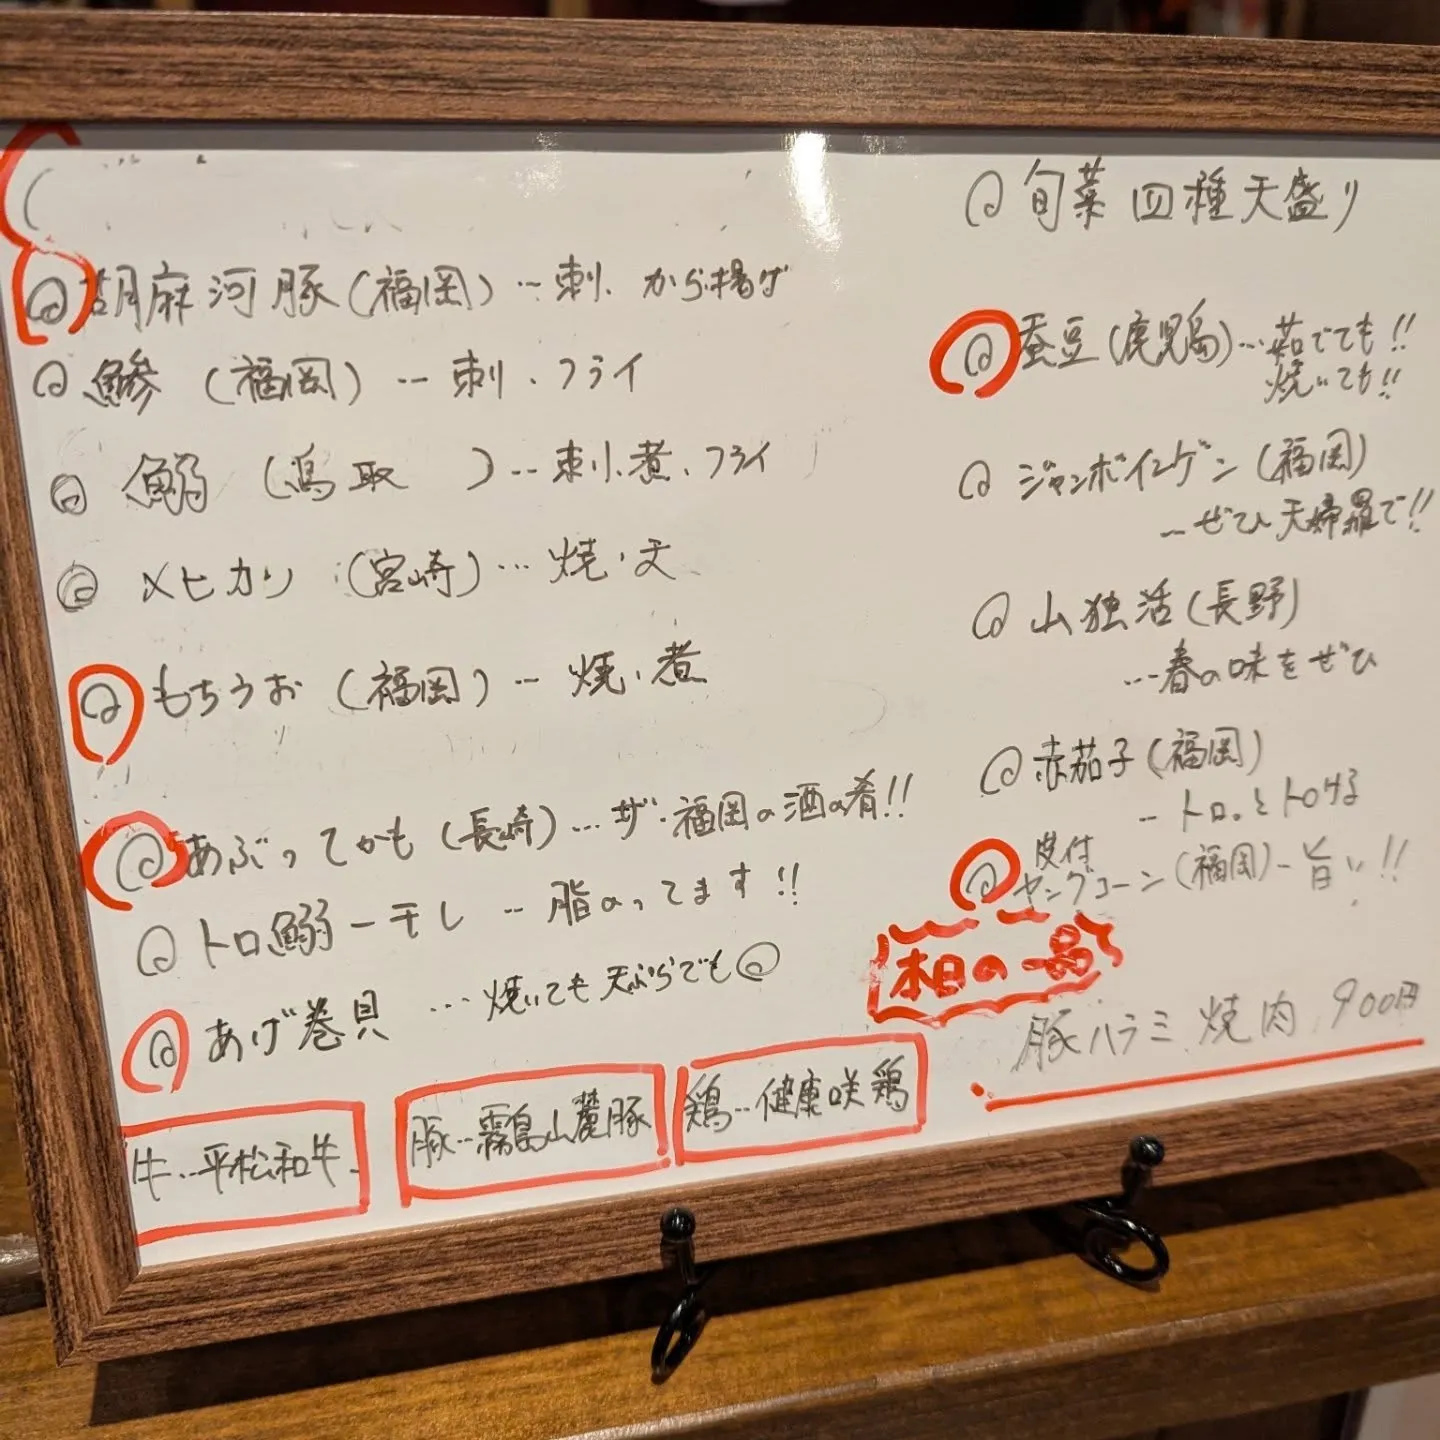 胡麻河豚(福岡)…刺、から揚げ
鯵(福岡)…刺、フライ
鰯(鳥取 )…刺、煮、フライ
メヒカリ(宮崎)…焼、天
もちうお(福岡)…焼、煮
あぶってかも(長崎)…ザ・福岡の酒の肴!!
トロ鰯一干し…脂のってます!!
あげ巻貝…焼いても天ぷらでも◎
牛…平松和牛
豚…霧島山麓豚
鶏…健康咲鶏
旬菜四種天盛り
蚕豆(鹿児島)…茹でても!!
焼いても!!
ジャンボインゲン(福岡)
…ぜひ天婦羅で!!
山独活(長野)
…春の味をぜひ
赤茄子(福岡)
…トロっとトロける
皮付
ヤングコーン(福岡)…旨い!!
本日の一品
豚ハラミ焼肉 900円